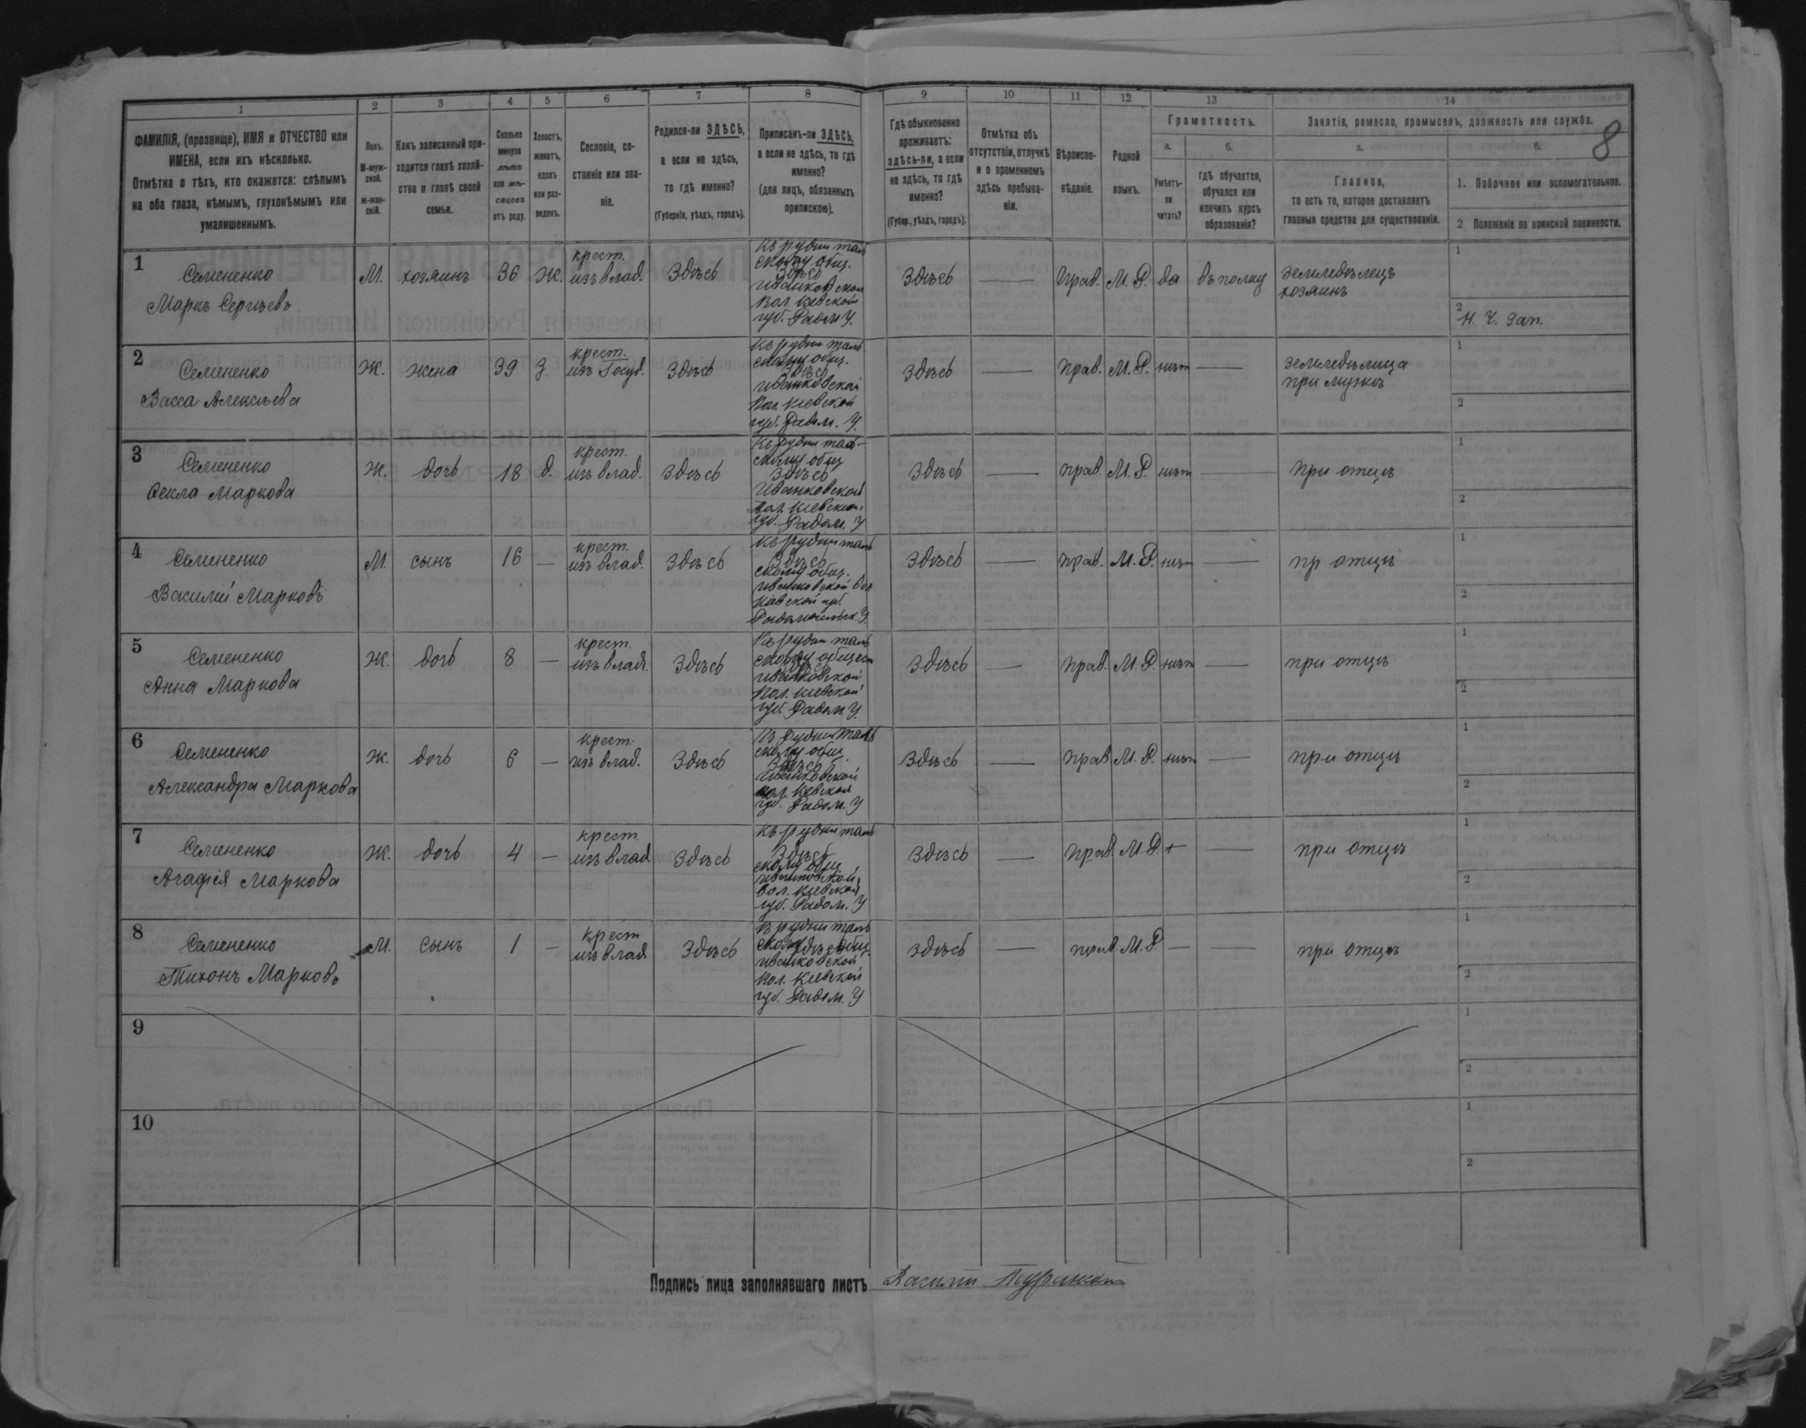 1
2
3
4
5
6
7
8
9
10
11
12
13
14
8
ФАМИЛІЯ, (прозвище), ИМЯ и ОТЧЕСТВО или
ИМЕНА, если ихъ нѣсколько.
Отмѣтка о тѣхъ, кто окажется: слѣпымъ
на оба глаза, нѣмымъ, глухонѣмымъ или
умалишеннымъ.
Полъ.
М-муж-
ской.
Ж-жен-
скій.
Какъ записанный при-
ходится главѣ хозяй-
ства и главѣ своей
семьи.
Сколько
минуло
лѣтъ
или мѣ-
сяцевъ
отъ роду.
Холостъ,
женатъ,
вдовъ
или раз-
веденъ.
Сословіе, со-
стояніе или зва-
ніе.
Родился-ли ЗДѢСЬ,
а если не здѣсь,
то гдѣ именно?
(Губернія, уѣздъ, городъ).
Приписанъ-ли ЗДѢСЬ,
а если не здѣсь, то гдѣ
именно?
(для лицъ, обязанныхъ
припискою).
Гдѣ обыкновенно
проживаетъ:
здѣсь-ли, а если
не здѣсь, то гдѣ
именно?
(Губерн., уѣздъ, городъ).
Отмѣтка объ
отсутствіи, отлучкѣ
и о временномъ
здѣсь пребыва-
ніи.
Вѣроиспо-
вѣданіе.
Родной
языкъ.
Грамотность.
а.
Умѣетъ-
ли
читать?
б.
гдѣ обучается,
обучался или
кончилъ курсъ
образованія?
Занятіе, ремесло, промыселъ, должность или служба.
а.
Главное,
то есть то, которое доставляетъ
главныя средства для существованія.
б.
1. Побочное или вспомогательное.
2 Положеніе по воинской повинности.
1
Семененко
Маркъ Сергѣевъ
М.
хозяинъ
36
Ж.
крест.
изъ влад.
Здѣсь
Къ рудни таль
скому общ.
Здѣсь
Иванковской
Вол. Кіевской
губ. Радом У.
Здѣсь
Прав.
М. Р.
да
въ полку
земледѣлецъ
хозяинъ
1
2
Н. Ч. зап.
2
Семененко
Васса Алексѣева
Ж.
жена
39
З.
крест.
изъ Госуд.
Здѣсь
Къ рудни таль
скому общ.
Здѣсь
Иванковской
Вол. Кіевской
губ. Радом. У.
Здѣсь
прав.
М. Р.
нѣт
земледѣлица
при мужѣ
1
2
3
Семененко
Ѳекла Маркова
Ж.
дочь
18
д.
крест.
изъ влад.
Здѣсь
Къ рудни таль-
скому общ
Здѣсь
Иванковской
Вол. Кіевской
губ. Радом. У
Здѣсь
прав.
М. Р.
нѣт
при отцѣ
1
2
4
Семененко
Василій Марковъ
М.
сынъ
16
крест.
изъ влад.
Здѣсь
Къ рудни таль
Здѣсь
скому общ.
Иванковской Вол
Кіевской губ.
Радомысльск. У.
Здѣсь
прав.
М. Р.
нѣт
пр отцѣ
1
2
5
Семененко
Анна Маркова
Ж.
дочь
8
крест.
изъ влад.
Здѣсь
Къ рудни таль
скому общест
Здѣсь
Иванковской
Вол. Кіевской
губ. Радом У.
Здѣсь
прав.
М. Р.
нѣт
при отцѣ
1
2
6
Семененко
Александра Маркова
Ж.
дочь
6
крест.
изъ влад.
Здѣсь
Къ рудни таль
скому общ.
Здѣсь
Иванковской
Вол. Кіевской
губ. Радом. У
Здѣсь
прав
М. Р.
нѣт
при отцѣ
1
2
7
Семененко
Агафія Маркова
Ж.
дочь
4
крест
изъ влад
Здѣсь
Къ рудни таль
Здѣсь
скому общ
Иванковской
Вол. Кіевской
губ. Радом. У
Здѣсь
прав.
М. Р.
при отцѣ
1
2
8
Семененко
Тихонъ Марковъ
М.
сынъ
1
крест
изъ влад
Здѣсь
Къ рудни таль
скому общ.
Здѣсь
Иванковской
Вол. Кіевской
губ. Радом. У
Здѣсь
прав.
М. Р
при отцѣ
1
2
9
1
2
10
1
2
Подпись лица заполнявшаго листъ Василій